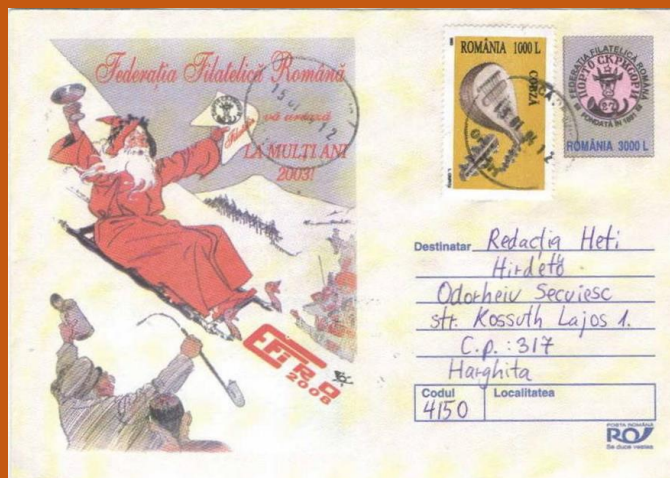 Federația Filatelică Română
vă urează
LA MULȚI ANI
2003!
EFIRO
2008
ROMÂNIA 1000 L
COBZA
FEDERAȚIA FILATELICĂ ROMÂNĂ
ПОРТО СКРИСОРИ
27
FONDATĂ ÎN 1891
ROMÂNIA 3000 L
Destinatar Redacția Heti
Hirdető
Odorheiu Secuiesc
str. Kossuth Lajos 1.
C.p.: 317
Harghita
Codul Localitatea
4150
POȘTA ROMÂNĂ
Se duce vestea